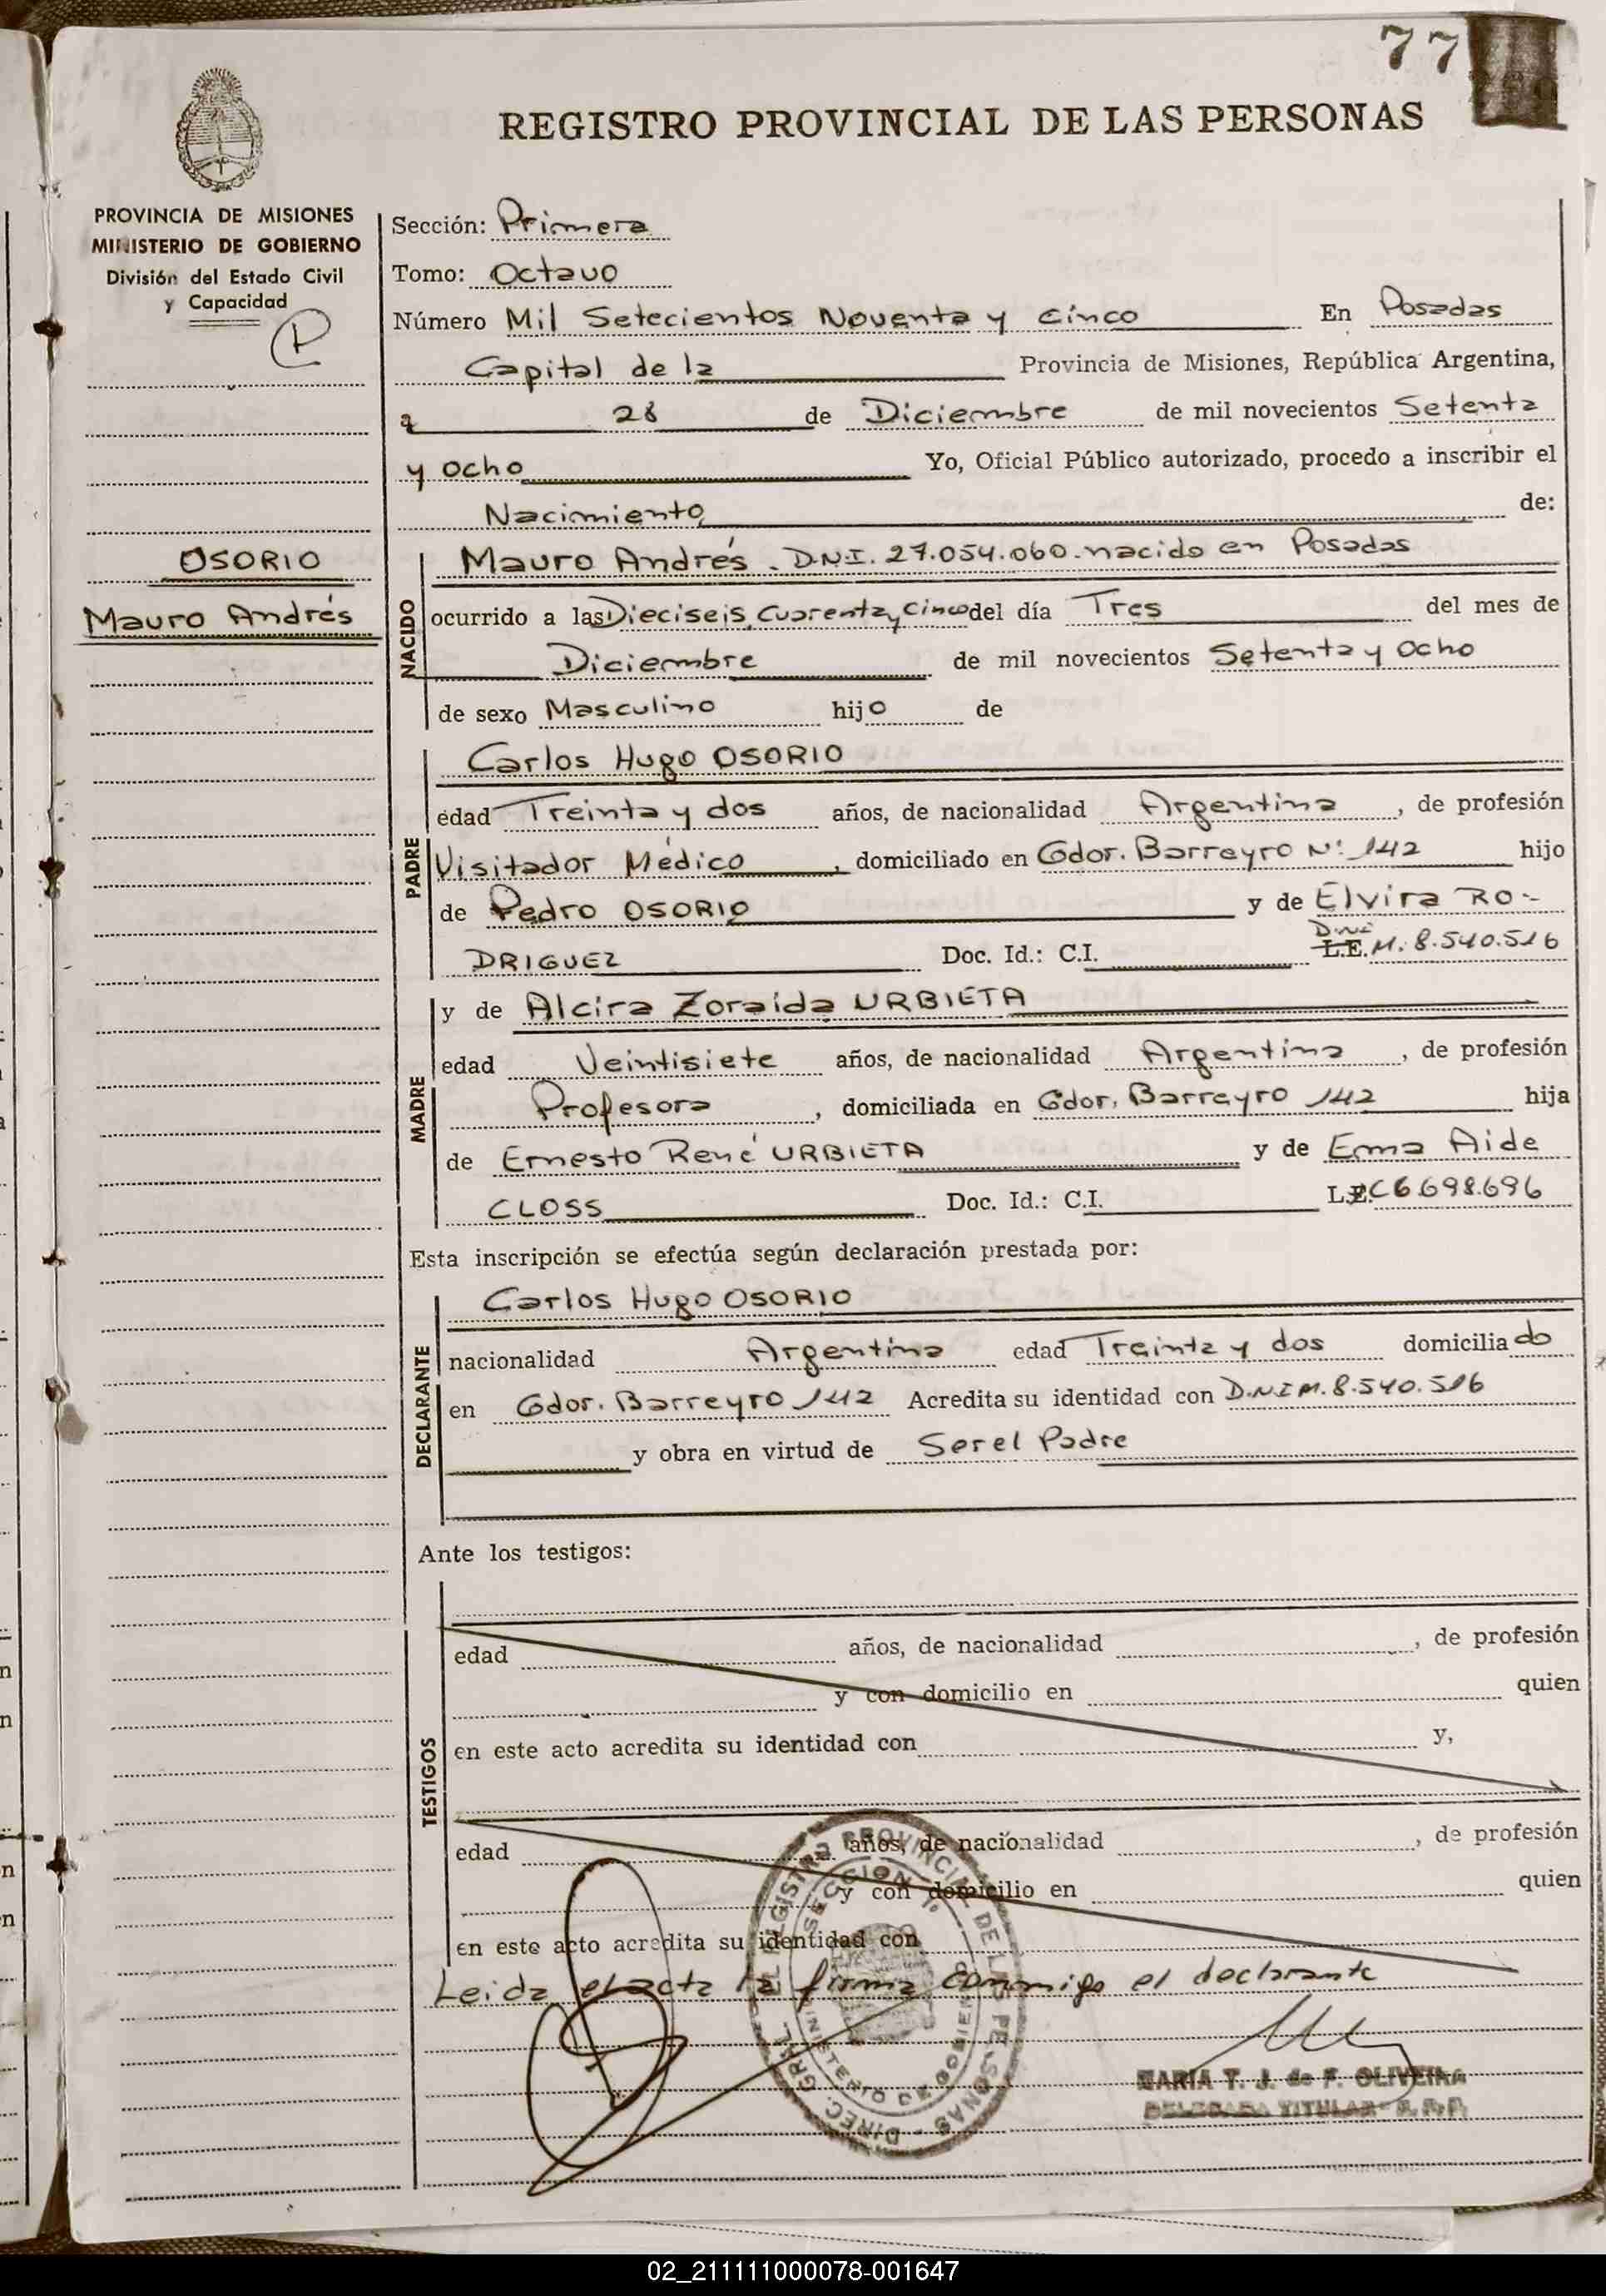 77
REGISTRO PROVINCIAL DE LAS PERSONAS
PROVINCIA DE MISIONES
MINISTERIO DE GOBIERNO
División del Estado Civil
y Capacidad
Sección: Primera
Tomo: Octavo
Número Mil Setecientos Noventa y cinco En Posadas
Capital de la Provincia de Misiones, República Argentina,
a 28 de Diciembre de mil novecientos Setenta
y ocho Yo, Oficial Público autorizado, procedo a inscribir el
Nacimiento de:
OSORIO
Mauro Andrés
NACIDO
Mauro Andrés. D.N.I. 27.054.060.nacido en Posadas
ocurrido a las Dieciseis, Cuarenta y Cinco del día Tres del mes de
Diciembre de mil novecientos Setenta y Ocho
de sexo Masculino hijo de
PADRE
Carlos Hugo OSORIO
edad Treinta y dos años, de nacionalidad Argentina, de profesión
Visitador Médico, domiciliado en Gdor. Barreyro N: 142 hijo
de Pedro OSORIO y de Elvira RO-
DRIGUEZ Doc. Id.: C.I. L.E. D.N.I M. 8.540.516
MADRE
y de Alcira Zoraida URBIETA
edad Veintisiete años, de nacionalidad Argentina, de profesión
Profesora, domiciliada en Gdor. Barreyro 142 hija
de Ernesto René URBIETA y de Erma Aide
CLOSS Doc. Id.: C.I. L.E.C 6.698.696
Esta inscripción se efectúa según declaración prestada por:
DECLARANTE
Carlos Hugo OSORIO
nacionalidad Argentina edad Treinta y dos domiciliado
en Gdor. Barreyro 142 Acredita su identidad con D.N.I M. 8.540.516
y obra en virtud de Ser el Padre
Ante los testigos:
TESTIGOS
edad años, de nacionalidad , de profesión
y con domicilio en quien
en este acto acredita su identidad con y,
edad años, de nacionalidad , de profesión
y con domicilio en quien
en este acto acredita su identidad con
Leida el acta la firma conmigo el declarante
DIREC. GRAL. REGISTRO PROVINCIAL DE LAS PERSONAS
SECCION 1º
MINISTERIO DE GOBIERNO
MARIA T. J. de F. OLIVEIRA
DELEGADA TITULAR - R. P. P.
02_211111000078-001647